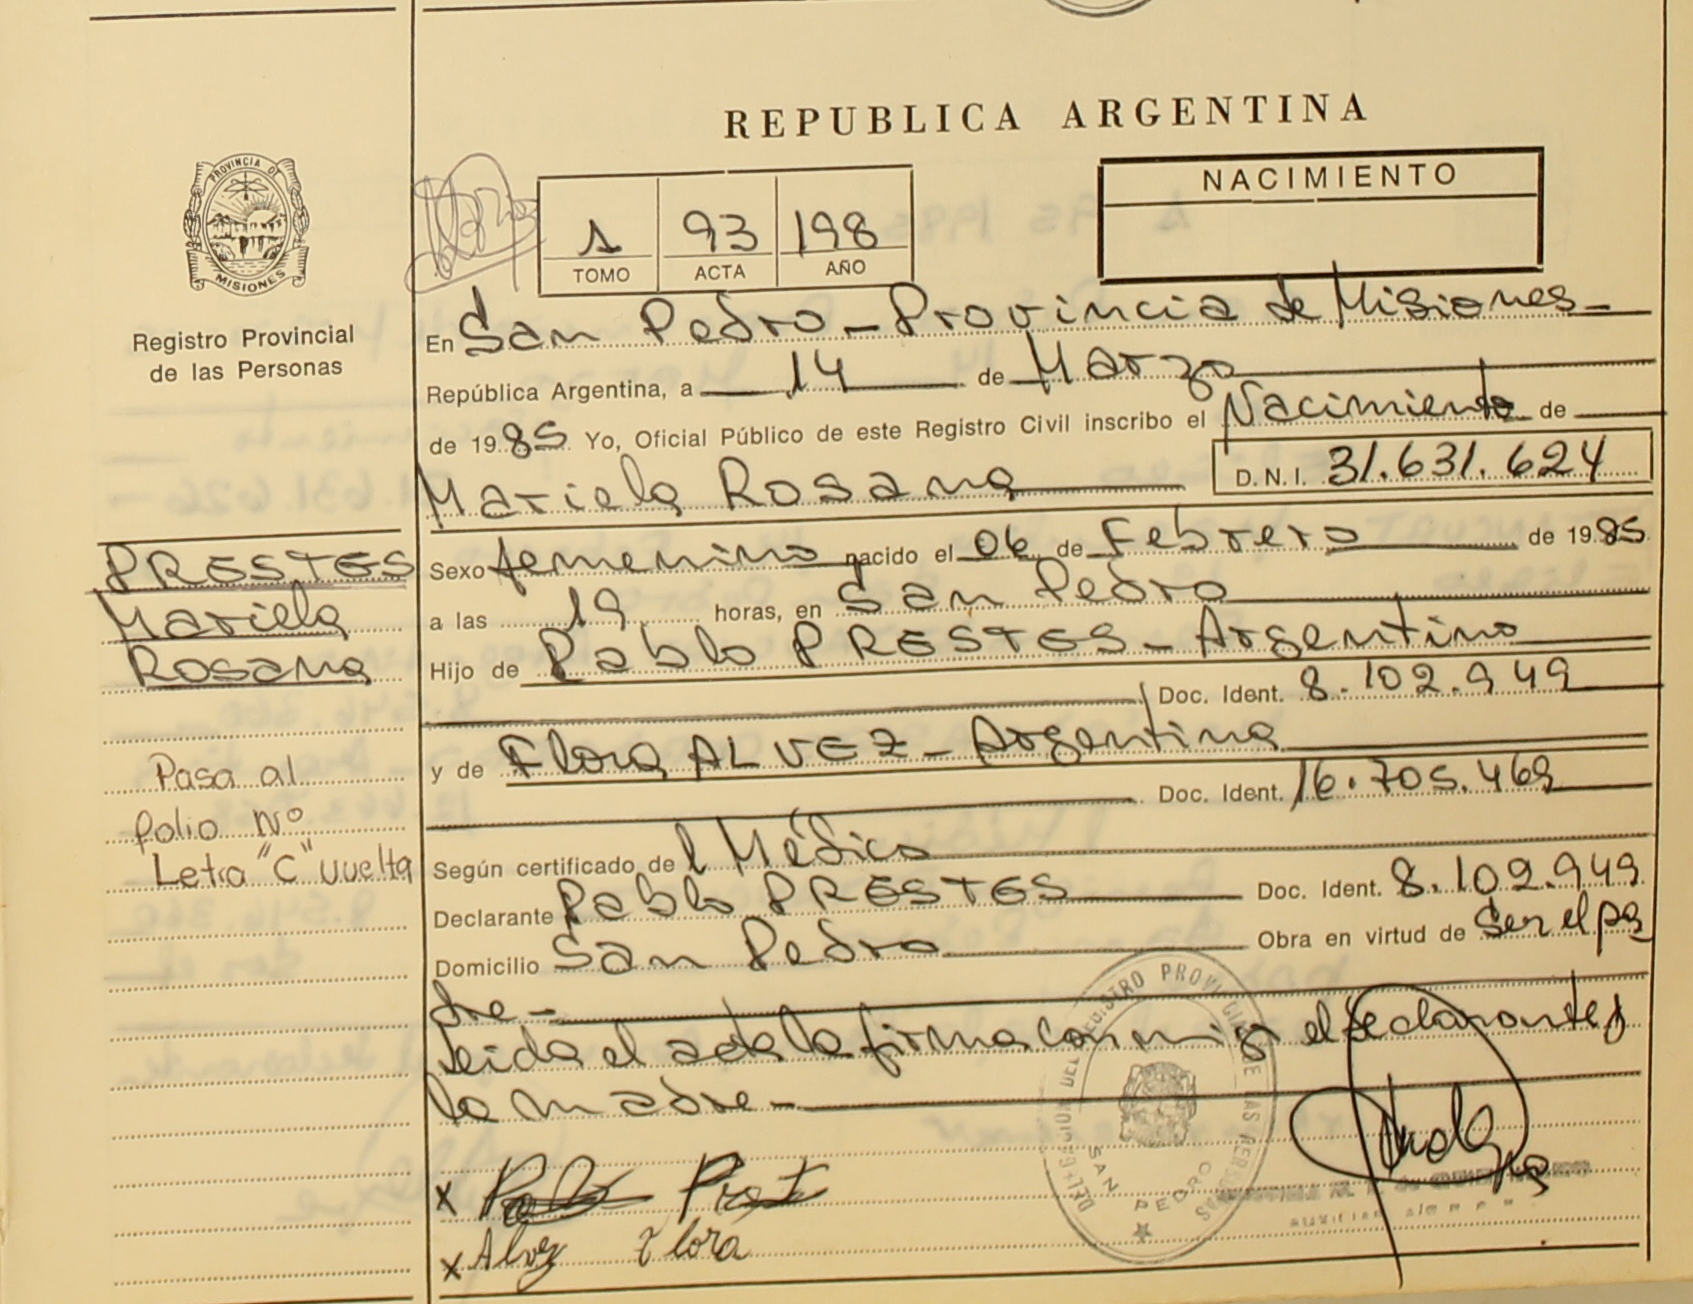 REPUBLICA ARGENTINA
PROVINCIA DE
MISIONES
Registro Provincial
de las Personas
1 93 198
TOMO ACTA AÑO
NACIMIENTO
En San Pedro - Provincia de Misiones -
República Argentina, a 14 de Marzo
de 1985 Yo, Oficial Público de este Registro Civil inscribo el Nacimiento de
Mariela Rosana D.N.I. 31.631.624
PRESTES
Mariela
Rosana
Sexo femenino nacido el 06 de Febrero de 1985
a las 19 horas, en San Pedro
Hijo de Pablo PRESTES - Argentino
Doc. Ident. 8.102.949
y de Flora ALVEZ - Argentina
Doc. Ident. 16.705.469
Pasa al
folio Nº
Letra "C" vuelta
Según certificado de l Médico
Declarante Pablo PRESTES Doc. Ident. 8.102.949
Domicilio San Pedro Obra en virtud de ser el pa
dre -
Leida el acta la firma con migo el declarante y
la madre -
REGISTRO PROVINCIAL DE LAS PERSONAS
SAN PEDRO
x
x Alvez Flora